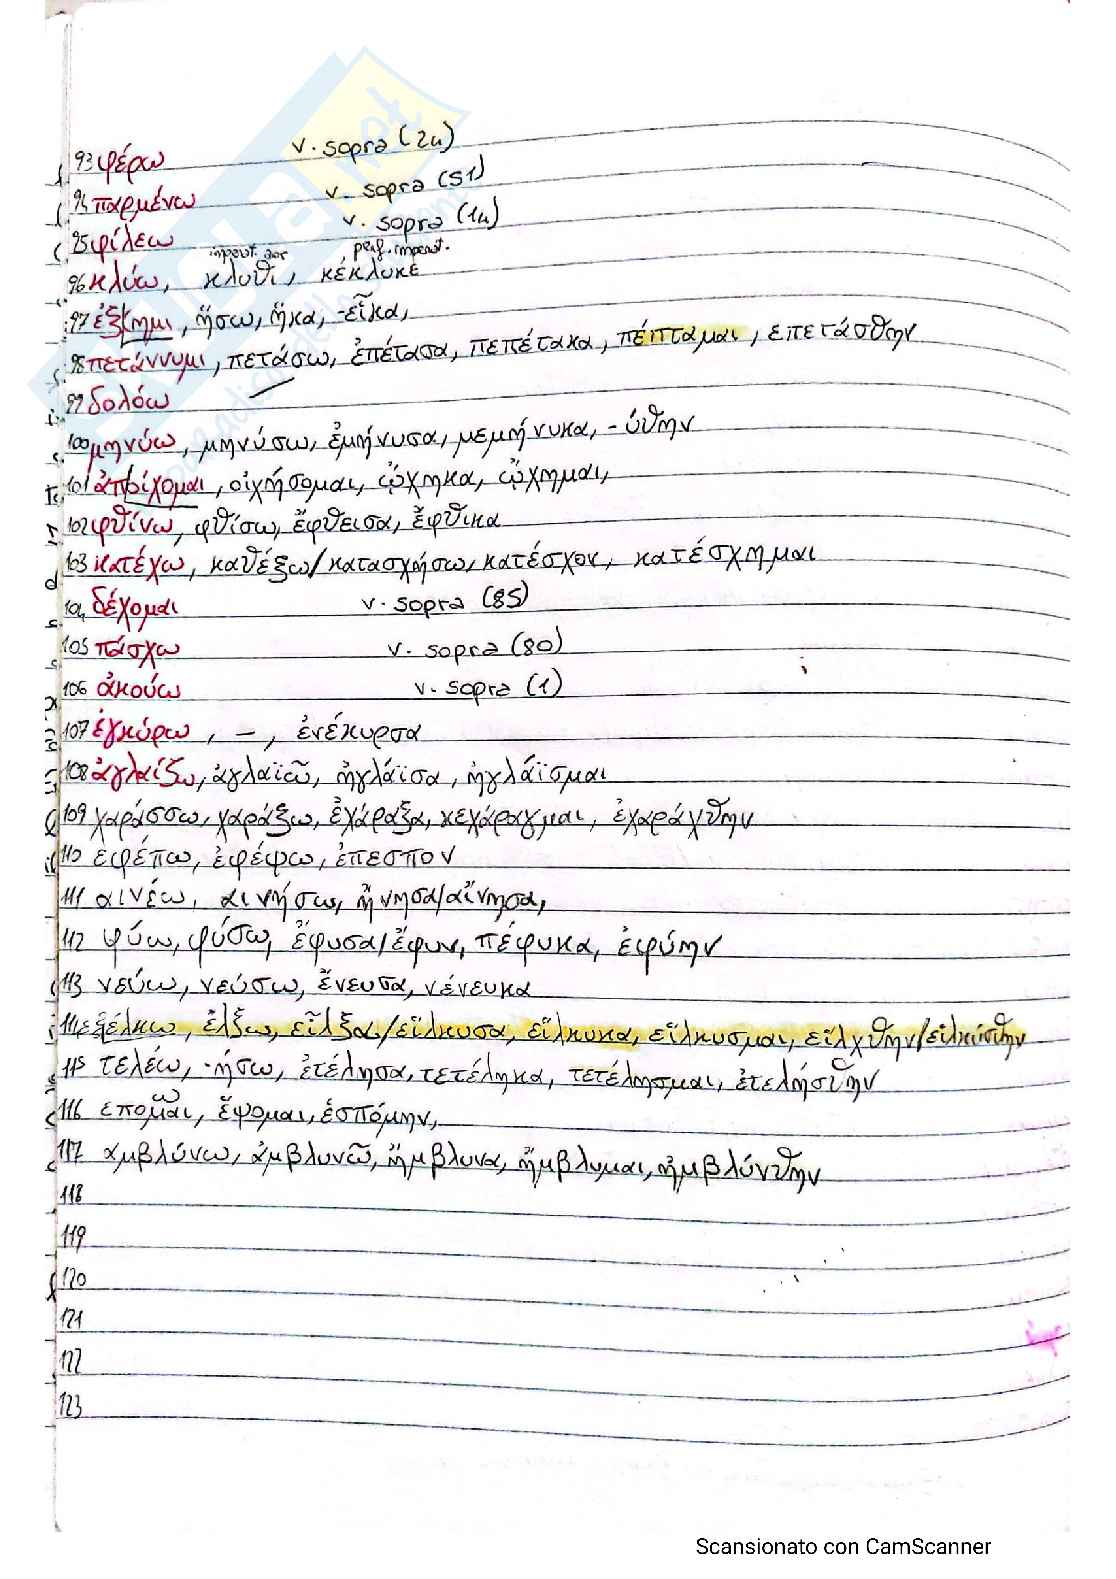 93 φέρω v. sopra (24)
94 παρμένω v. sopra (51)
95 φίλεω v. sopra (14)
imperat. aor perf. imperat.
96 κλύω, κλυθι, κέκλυκε
97 ἐξίημι, ἥσω, ἧκα, -εἷκα,
98 πετάννυμι, πετάσω, ἐπέτασα, πεπέτακα, πέπταμαι, επετάσθην
99 δολόω
100 μηνύω, μηνύσω, ἐμήνυσα, μεμήνυκα, -ύθην
101 ἀποίχομαι, οἰχήσομαι, ᾤχηκα, ᾤχημαι,
102 φθίνω, φθίσω, ἔφθεισα, ἔφθικα
103 κατέχω, καθέξω/κατασχήσω, κατέσχον, κατέσχημαι
104 δέχομαι v. sopra (85)
105 πάσχω v. sopra (80)
106 ἀκούω v. sopra (1)
107 ἐγκύρω, -, ἐνέκυρσα
108 ἀγλαίζω, ἀγλαϊῶ, ἠγλάϊσα, ἠγλάϊσμαι
109 χαράσσω, χαράξω, ἐχάραξα, κεχάραγμαι, ἐχαράχθην
110 εφέπω, ἐφέψω, ἐπεσπον
111 αινέω, αινήσω, ᾔνησα/αἴνησα,
112 φύω, φύσω, ἔφυσα/ἔφυν, πέφυκα, ἐφύην
113 νεύω, νεύσω, ἔνευσα, νένευκα
114 εξέλκω, ἑλξω, εἷλξα/εἵλκυσα, εἵλκυκα, εἵλκυσμαι, εἱλχθην/εἱλκύσθην
115 τελέω, -ήσω, ἐτέλησα, τετέληκα, τετέλησμαι, ἐτελήσθην
116 επομαι, ἕψομαι, ἑσπόμην,
117 αμβλύνω, ἀμβλυνῶ, ἤμβλυνα, ἤμβλυμαι, ἠμβλύνθην
118
119
120
121
122
123
Scansionato con CamScanner